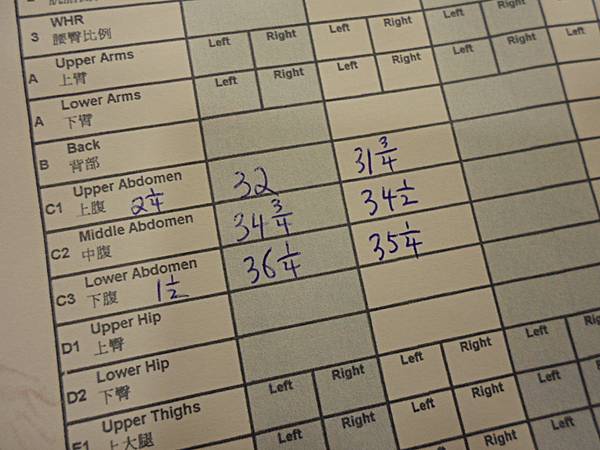 WHR
3 腰臀比例
Left Right Left Right Left Right
Upper Arms
A 上臂
Left Right Left Right Left Right Left
Lower Arms
A 下臂
Back
B 背部
Upper Abdomen
C1 上腹 2 1/4 32 31 3/4
Middle Abdomen
C2 中腹 34 3/4 34 1/2
Lower Abdomen
C3 下腹 1 1/2 36 1/4 35 1/4
Upper Hip
D1 上臀
Lower Hip
D2 下臀
Left Right Left Right Left
Upper Thighs
E1 上大腿
Left Right Left Right Left